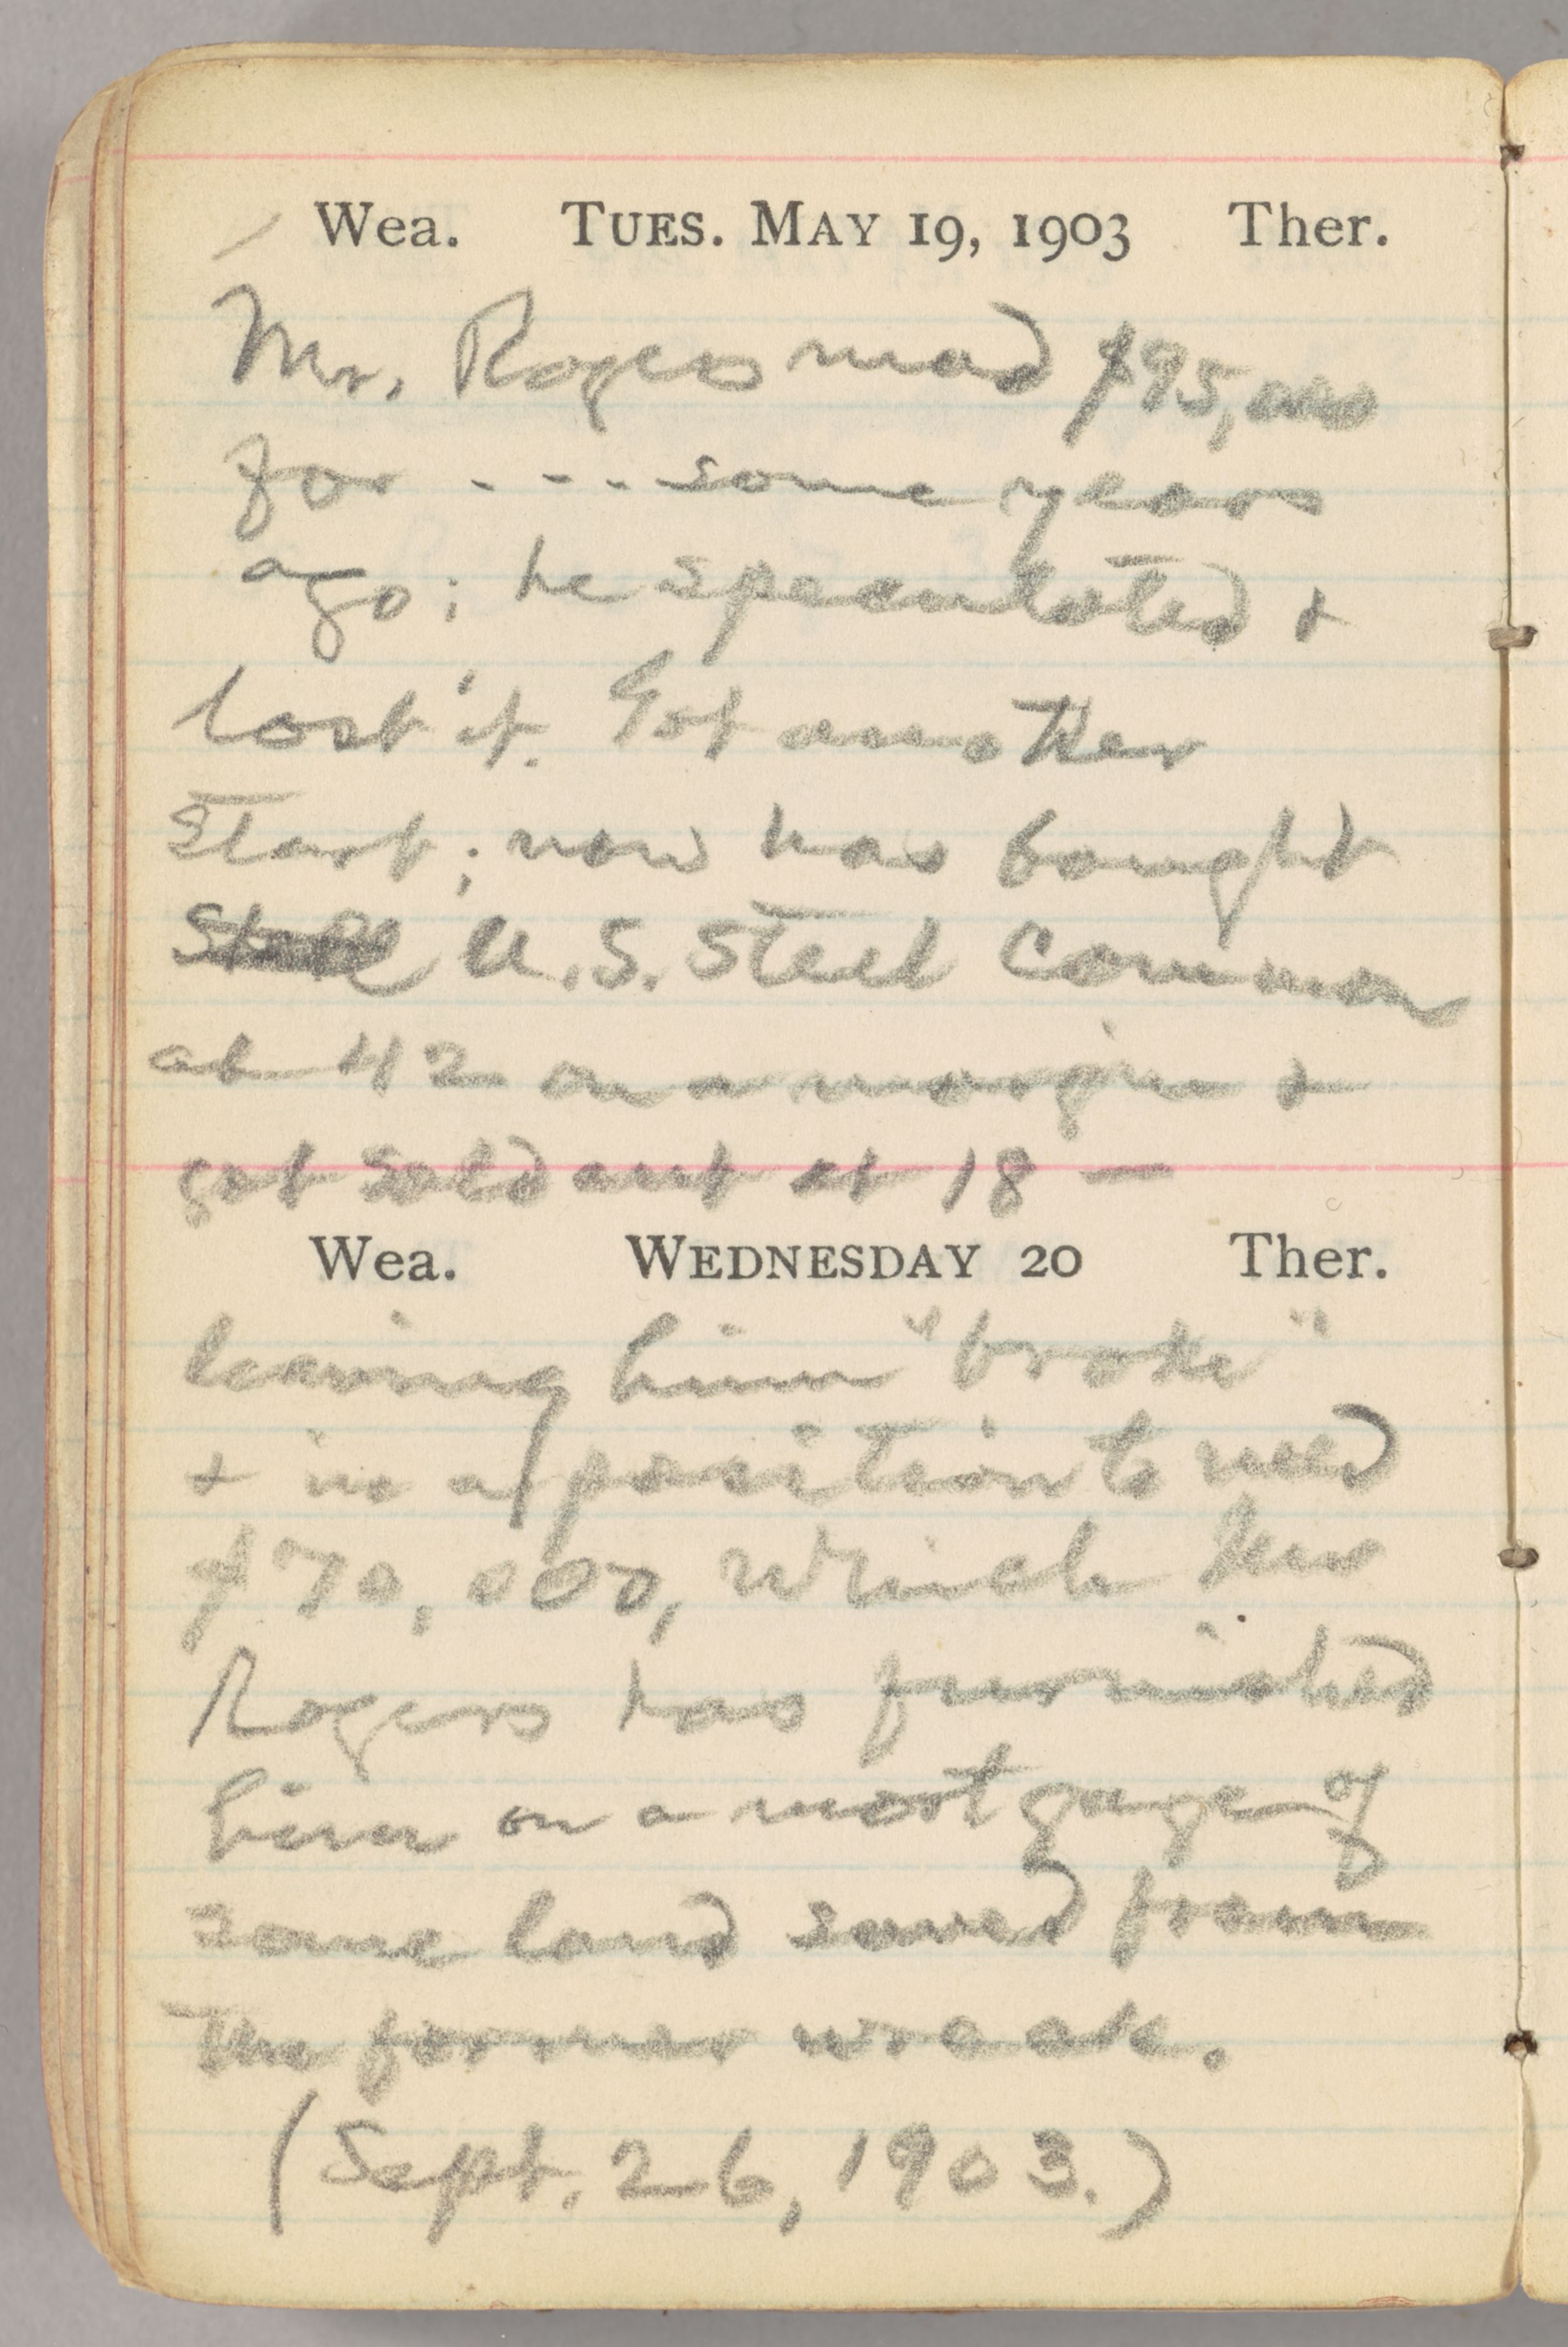 Wea. TUES. MAY 19, 1903 Ther.
Mr. Rogers mad $95,000
for - - - - some years
ago; he speculated +
lost it. Got another
start; now has bought
U.S. Steel Common
at 42 on a margin +
got sold out at 18 —
Wea. WEDNESDAY 20 Ther.
leaving him "broke"
+ in a position to need
$70,000, which
Rogers has furnished
him on a mortgage of
some land saved from
the former wreck.
(Sept. 26, 1903.)